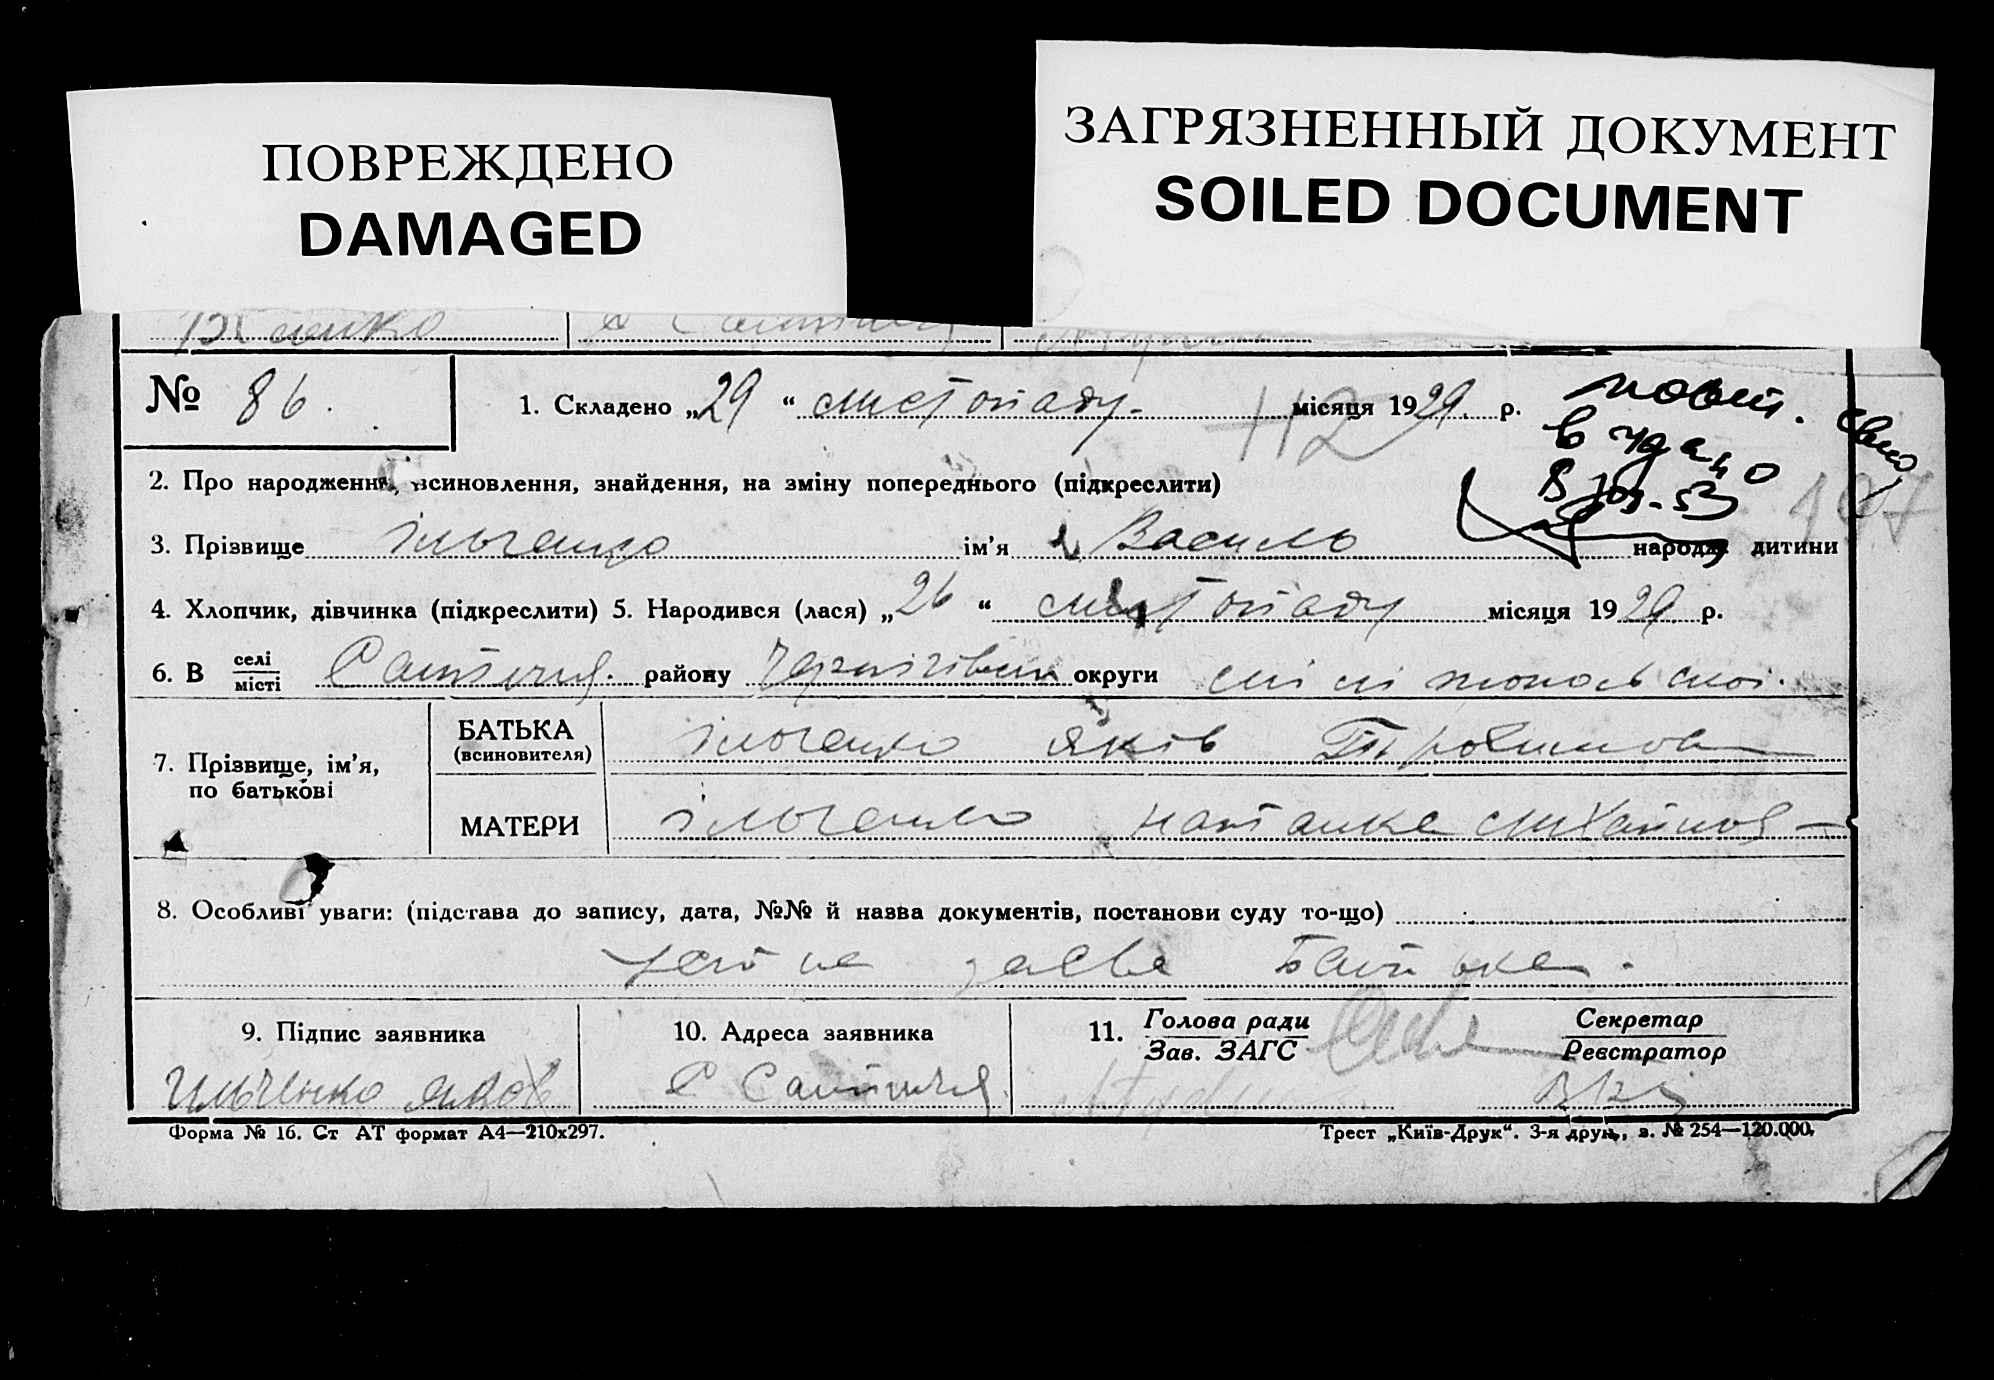 ПОВРЕЖДЕНО
DAMAGED
ЗАГРЯЗНЕННЫЙ ДОКУМЕНТ
SOILED DOCUMENT
№ 86. 1. Складено „29“ листопаду місяця 1929 р.
112
повт. свид
видано
107
2. Про народження, всиновлення, знайдення, на зміну попереднього (підкреслити)
3. Прізвище Ільченко ім’я Василь народж. дитини
4. Хлопчик, дівчинка (підкреслити) 5. Народився (лася) „26“ листопаду місяця 1929 р.
6. В селі місті району округи
7. Прізвище, ім’я, по батькові
БАТЬКА (всиновителя) Ільченко Яків
МАТЕРИ Ільченко Михайловна
8. Особливі уваги: (підстава до запису, дата, №№ й назва документів, постанови суду то-що)
Усна заява Батька.
9. Підпис заявника 10. Адреса заявника 11. Голова ради Зав. ЗАГС Секретар Реєстратор
Ильченко Яков
Форма № 16. Ст АТ формат А4—210x297. Трест „Київ-Друк“. 3-я друк., з. № 254—120.000.